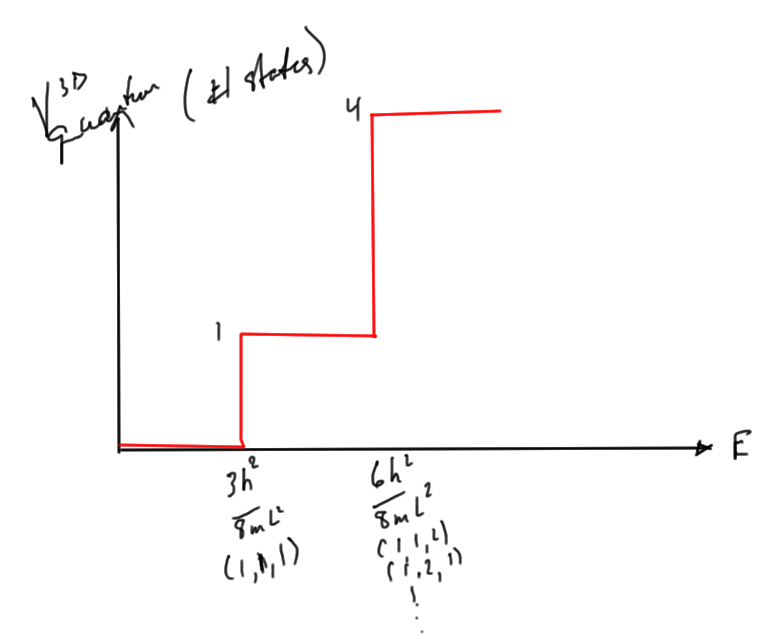 V 3D quantum (# states)
4
1
E
3h²
8mL²
(1,1,1)
6h²
8mL²
(1,1,2)
(1,2,1)